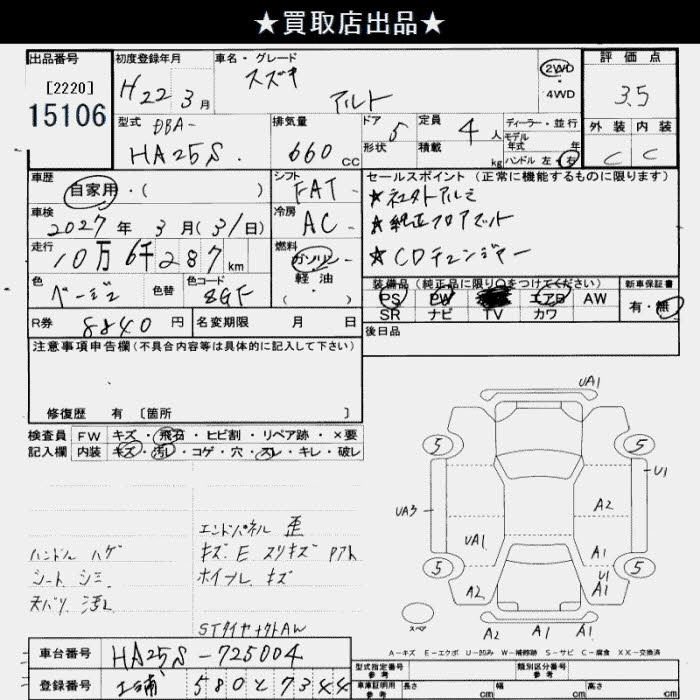 ★買取店出品★
出品番号 [2220] 15106
初度登録年月 H22年3月
車名・グレード スズキ アルト
2WD・4WD
評価点 3.5
外装 C 内装 C
型式 DBA- HA25S
排気量 660cc
ドア 5 形状
定員 4人 積載 kg
ディーラー・並行
モデル年式 年
ハンドル 左・右
車歴 自家用・( )
シフト FAT
セールスポイント (正常に機能するものに限ります)
★社外アルミ
★純正フロアマット
★CDチェンジャー
車検 2027年3月(31日)
冷房 AC
走行 10万6千287km
燃料 ガソリン・軽油 ( ・ )
色 ベージュ 色替 色コード ZGF
装備品(純正品に限り○をつけてください) 新車保証書
PS PW エアB AW 有・無
SR ナビ TV カワ
R券 8840円 名変期限 月 日
後日品
注意事項申告欄(不具合内容等は具体的に記入して下さい)
修復歴 有 [箇所 ]
検査員 FW キズ・飛石・ヒビ割・リペア跡・×要
記入欄 内装 キズ・汚れ・コゲ・穴・スレ・キレ・破レ
エンドパネル 歪
ハンドル ハゲ
キズ E スリキズ タッチ
シート シミ
ホイール キズ
天バリ 汚レ
STタイヤナットAW
UA1
5 5
U1
UA3 A2
UA1 A1
5 U1 5
A2 A1
スペア
A2 A1 A1
A-キズ E-エクボ U-凹み W-補修跡 S-サビ C-腐食 XX-交換済
車台番号 HA25S-725004
登録番号 土浦 580 と 7344
型式指定番号 参考 類別区分番号 参考
車庫証明用 参考 長さ cm 幅 cm 高さ cm